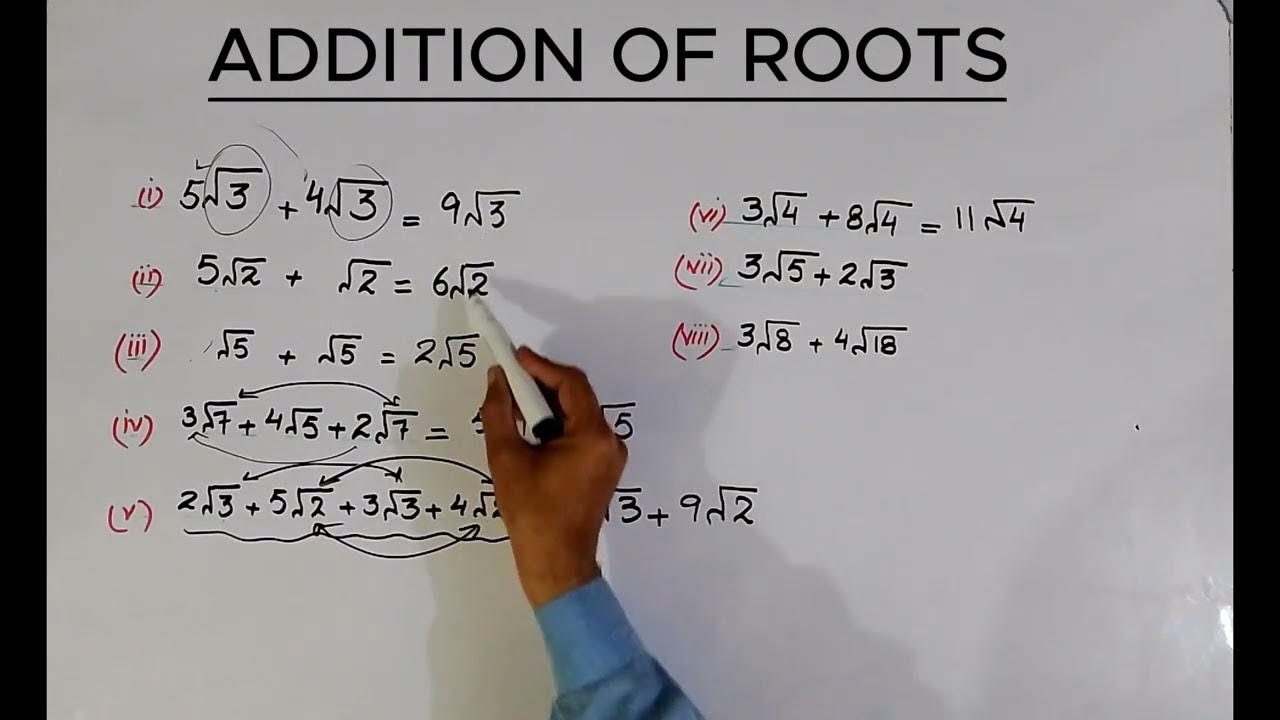 ADDITION OF ROOTS
(i) 5√3 + 4√3 = 9√3
(ii) 5√2 + √2 = 6√2
(iii) √5 + √5 = 2√5
(iv) 3√7 + 4√5 + 2√7 = 5 √5
(v) 2√3 + 5√2 + 3√3 + 4√2 √3 + 9√2
(vi) 3√4 + 8√4 = 11√4
(vii) 3√5 + 2√3
(viii) 3√8 + 4√18